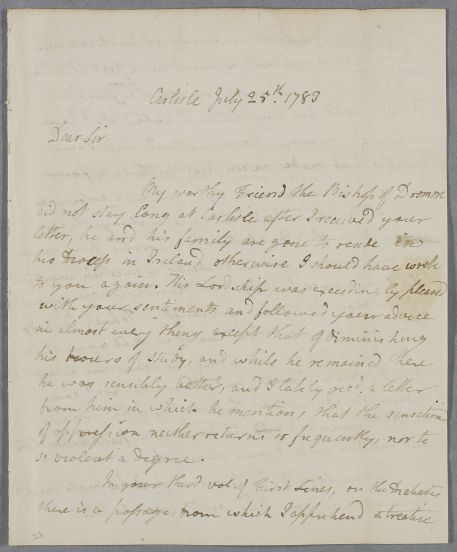 Carlisle July 25th. 1783
Dear Sir
My worthy Friend the Bishop of Dromore
did not stay long at Carlisle after I received your
letter, he and his family are gone to reside in
his Diocess in Ireland, otherwise I should have wrote
to you again. His Lordship was exceedingly pleased
with your sentiments and followed your advice
in almost every thing except that of diminishing
his hours of study, and while he remained here
he was sensibly better, and I lately recd. a letter
from him in which he mentions that the sensation
of oppression neither returns so frequently, nor to
so violent a degree.
In your third vol: of First Lines, on the Diabetes
there is a passage from which I apprehend a treatise